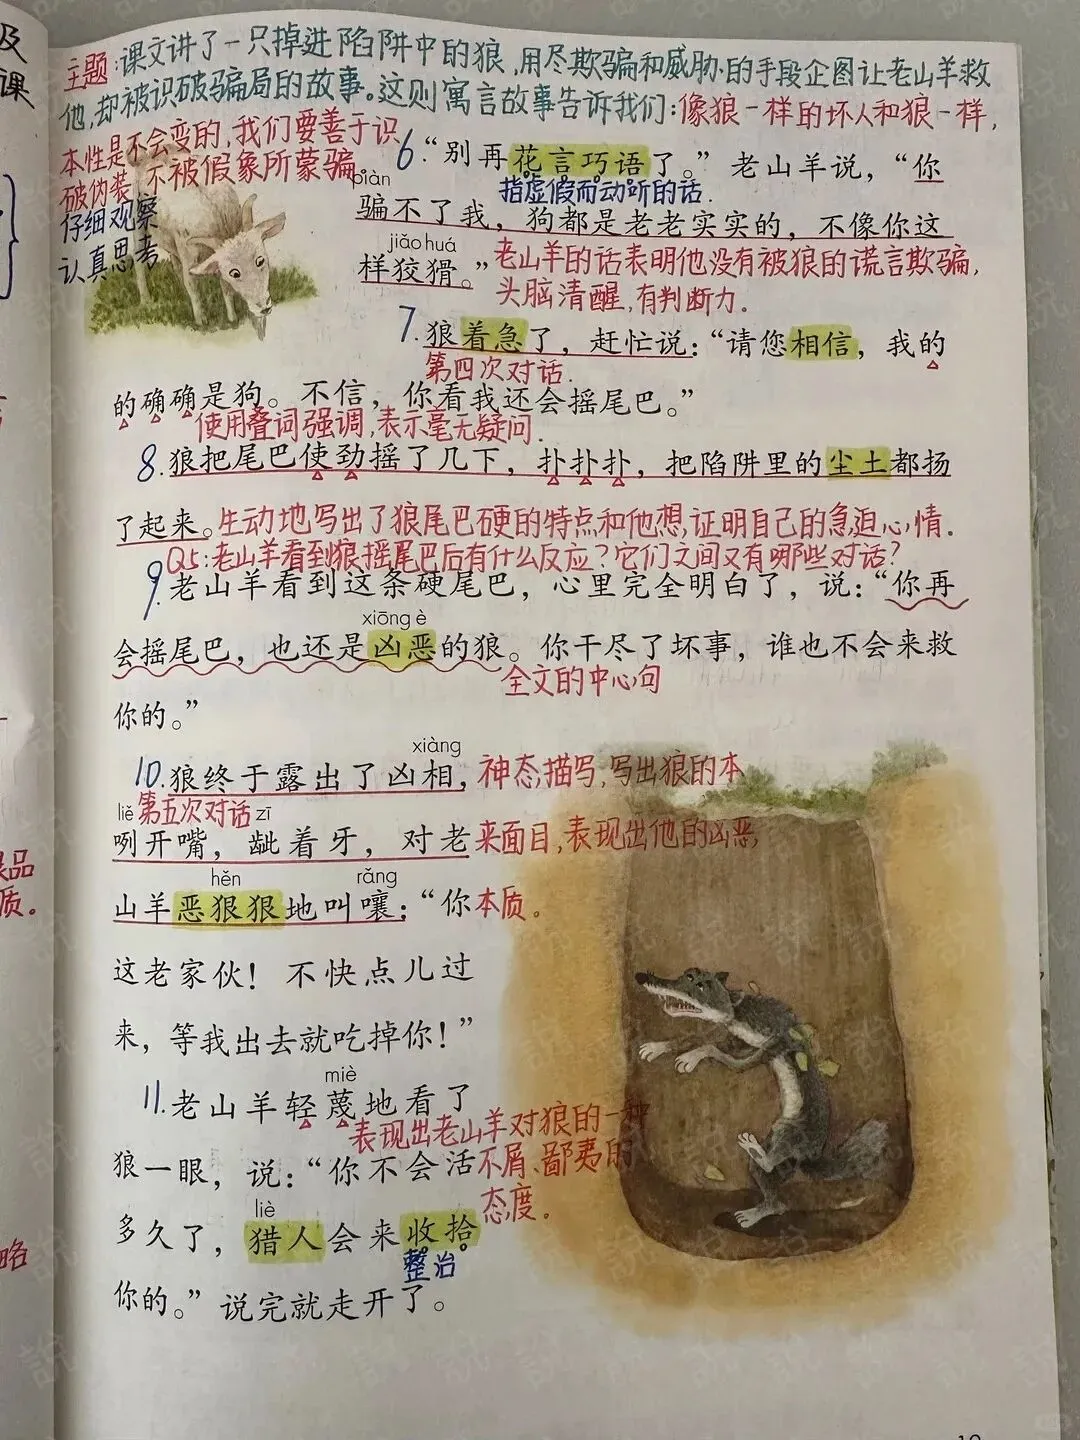 及
课
主题:课文讲了一只掉进陷阱中的狼,用尽欺骗和威胁的手段企图让老山羊救
他,却被识破骗局的故事。这则寓言故事告诉我们:像狼一样的坏人和狼一样,
本性是不会变的,我们要善于识
破伪装,不被假象所蒙骗。
仔细观察
认真思考
6.“别再花言巧语了。”老山羊说,“你
指虚假而动听的话.
piàn
骗不了我,狗都是老老实实的,不像你这
jiǎo huá
样狡猾。”
老山羊的话表明他没有被狼的谎言欺骗,
头脑清醒,有判断力.
7.狼着急了,赶忙说:“请您相信,我的
第四次对话.
的确确是狗。不信,你看我还会摇尾巴。”
使用叠词强调,表示毫无疑问.
8.狼把尾巴使劲摇了几下,扑扑扑,把陷阱里的尘土都扬
了起来。生动地写出了狼尾巴硬的特点和他想证明自己的急迫心情.
Q5:老山羊看到狼摇尾巴后有什么反应?它们之间又有哪些对话?
9.老山羊看到这条硬尾巴,心里完全明白了,说:“你再
xiōng è
会摇尾巴,也还是凶恶的狼。你干尽了坏事,谁也不会来救
全文的中心句
你的。”
xiàng
10.狼终于露出了凶相,神态描写,写出狼的本
liě 第五次对话 zī
咧开嘴,龇着牙,对老来面目,表现出他的凶恶
hěn rǎng
山羊恶狠狠地叫嚷:“你本质。
这老家伙!不快点儿过
来,等我出去就吃掉你!”
miè
11.老山羊轻蔑地看了
表现出老山羊对狼的一种
狼一眼,说:“你不会活不屑、鄙夷的
liè
态度。
多久了,猎人会来收拾
整治
你的。”说完就走开了。
品
质。
略